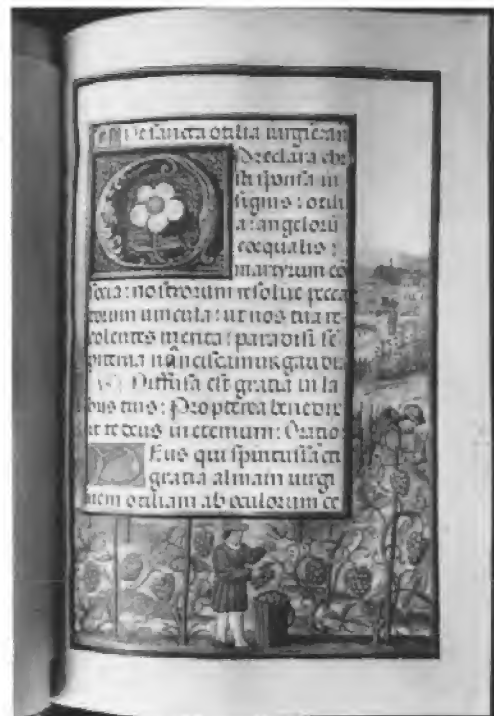 De sancta otilia uirgie an
Preclara chri
sti sponsa in
signis : otili
a : angelorū
coequalis :
martyrum cō
socia : nostrorum resolue pecca
torum uincula : ut nos tua re
colentes merita : paradisi se
piterna nanciscamur gaudia
Diffusa est gratia in la
bijs tuis : Propterea benedix
it te deus in eternum : Oratio
Eus qui spiritussācti
gratia almam uirgi
nem otiliam ab oculorum ce